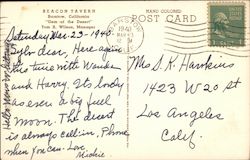 BEACON TAVERN
Barstow, California
"Gem of the Desert"
Tom R. Wilson, Manager
HAND COLORED
POST CARD
BARSTOW
1940
Saturday Mar-23-1940.
dear, Here again
this time with Wanda
and Harry. Its lovely
as ever a big full
moon. The desert
is always callin. Phone
when you can - Love
Mrs S. R. Hawkins
1423 W 20 St
Los Angeles
Calif.